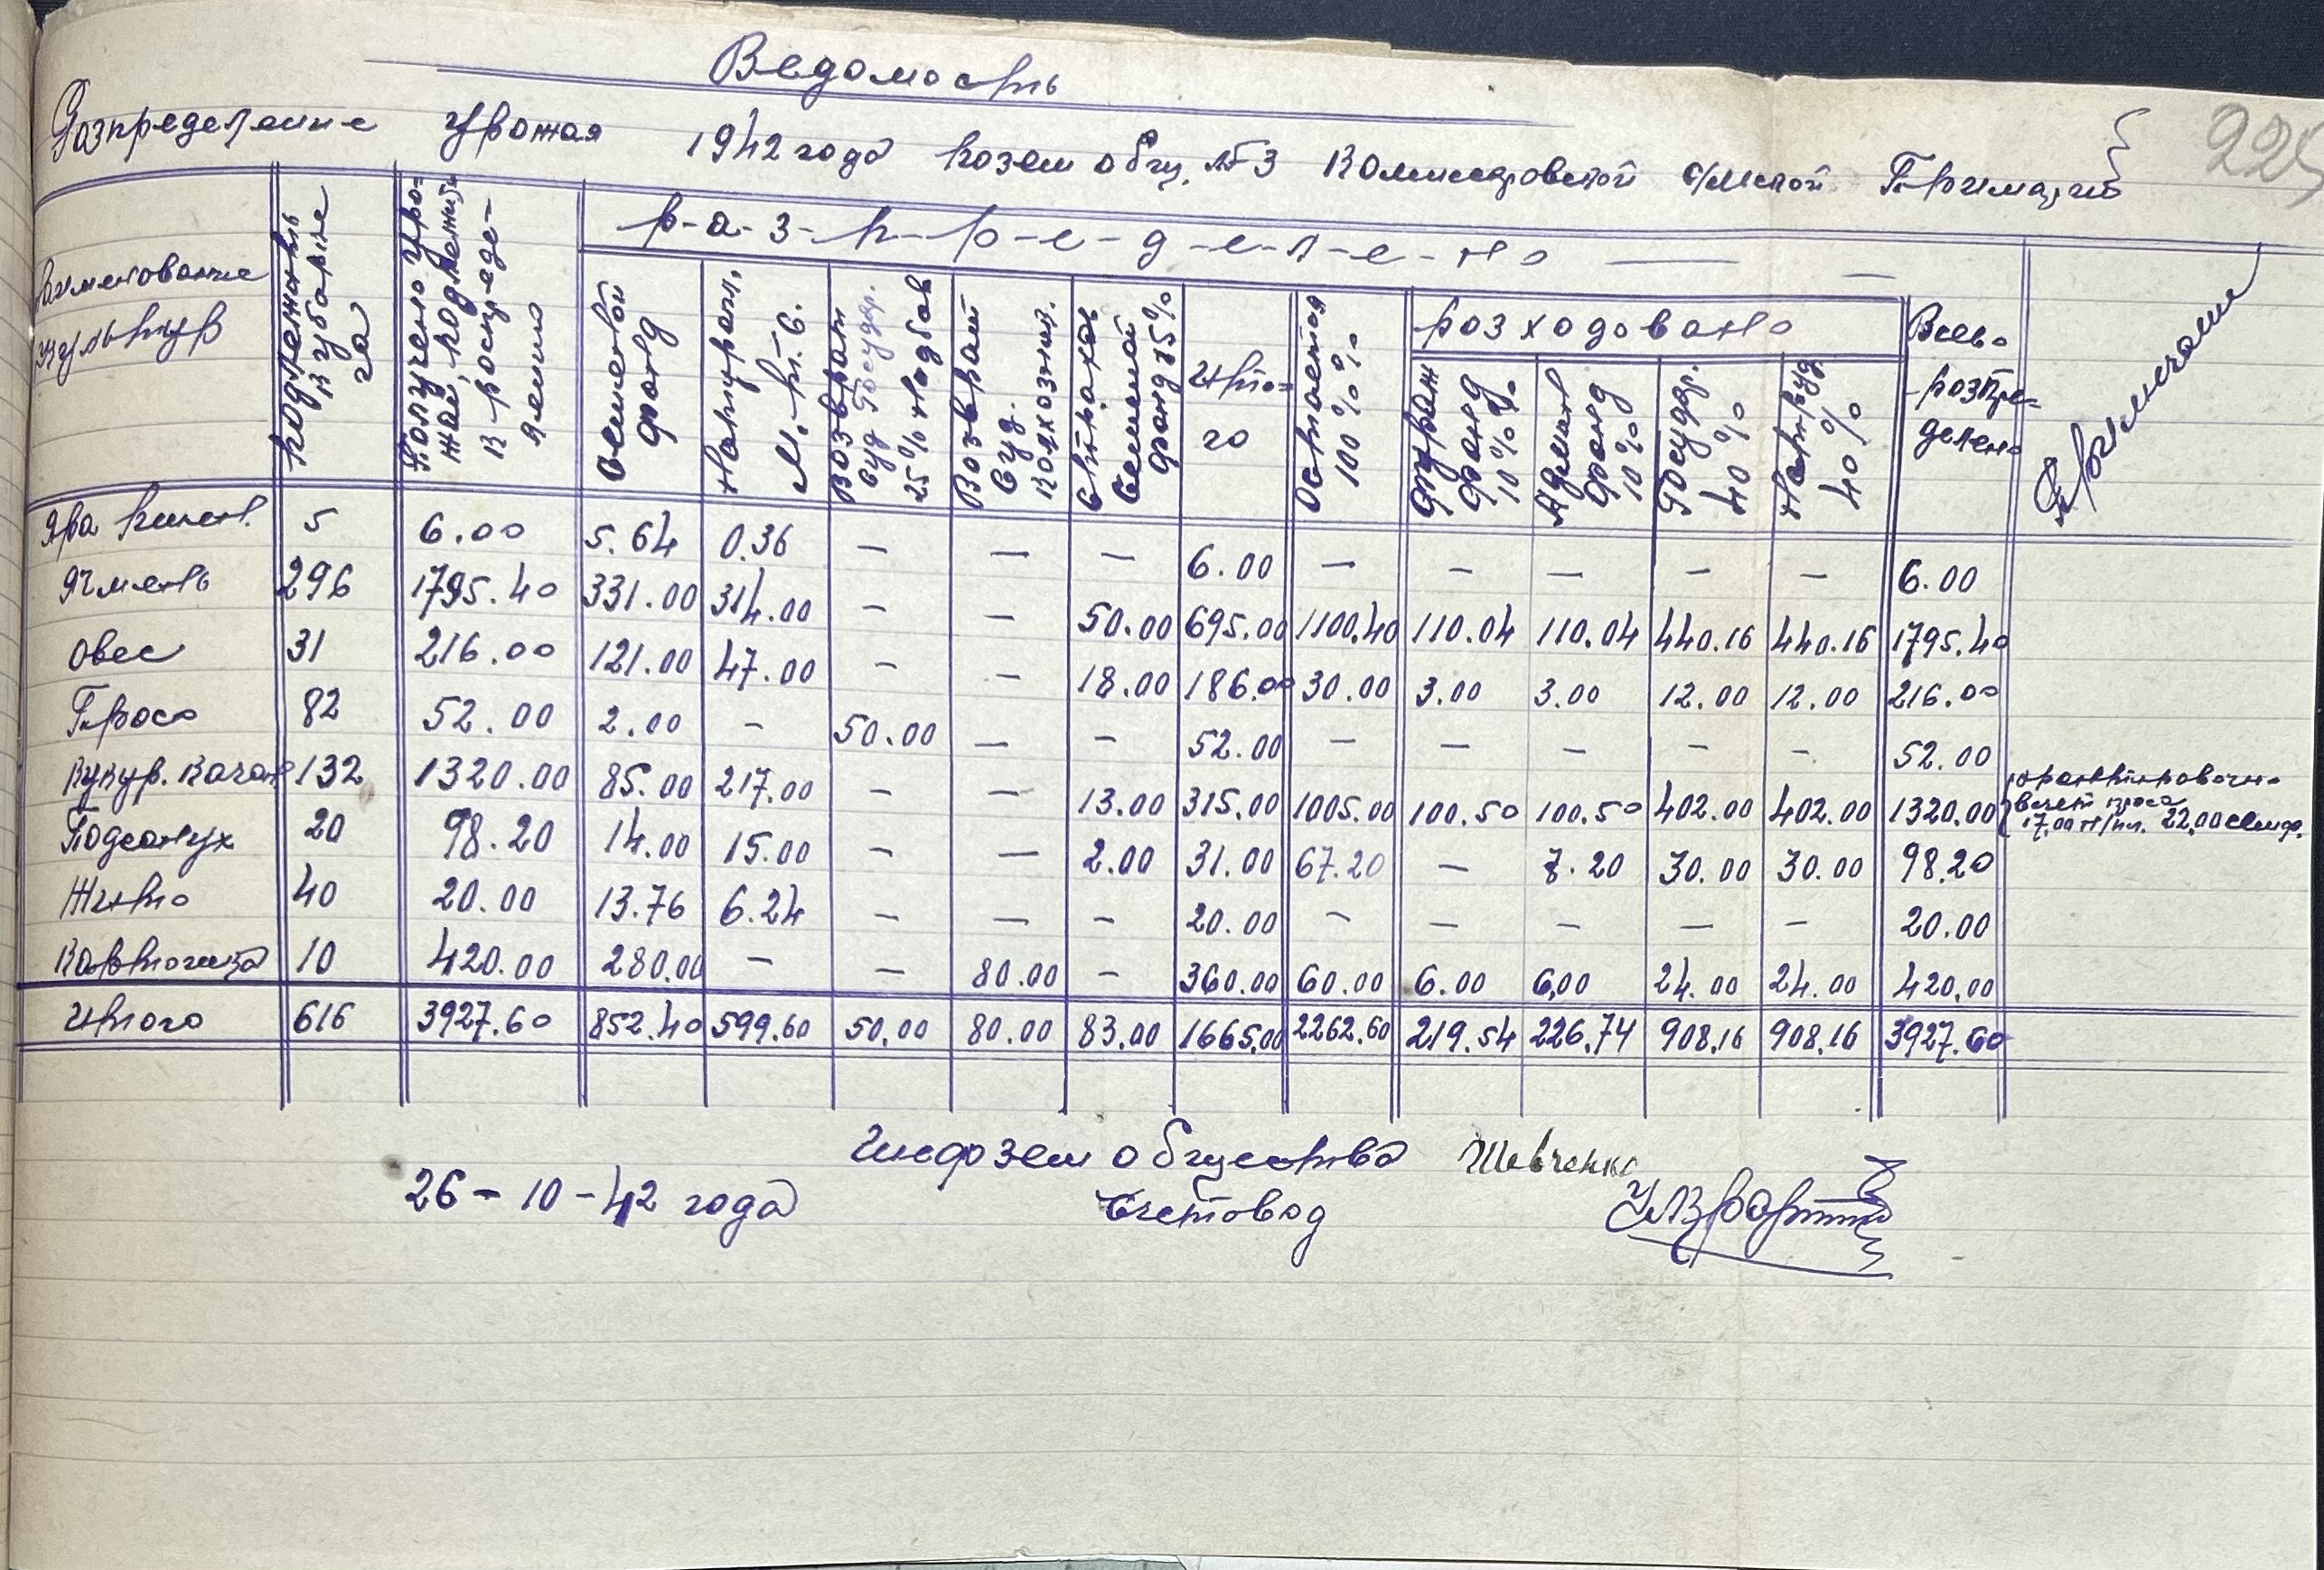 Ведомость
Розпределение урожая 1942 года позем общ. №3 Комисаровской с/мской Примарио
225
Наименование культур
Подлежить к уборке га
Получено уро-жай, подлежить к роспреде-лению
р-а-з-п-р-е-д-е-л-е-н-о
Семенной фонд
Натуроопл. М.Т.С.
Возврат суд Государ. 25% надбав
Возврат Суд. колхозник.
Страхов Семенной фонд 15%
Ито-го
Остается 100%%
розходовано
Фураж фонд 10%%
Админ фонд 10%
Государ. 40%
Натруд 40%
Всего розпре-делено
Примечание
Яра пшен. 5 6.00 5.64 0.36 — — — 6.00 — — — — — 6.00
Ячмень 296 1795.40 331.00 314.00 — — 50.00 695.00 1100.40 110.04 110.04 440.16 440.16 1795.40
Овес 31 216.00 121.00 47.00 — — 18.00 186.00 30.00 3.00 3.00 12.00 12.00 216.00
Просо 82 52.00 2.00 — 50.00 — — 52.00 — — — — — 52.00
Кукур. качан 132 1320.00 85.00 217.00 — — 13.00 315.00 1005.00 100.50 100.50 402.00 402.00 1320.00 гарантировочно
в счет проса
17,00 н/пл. 22,00 семф.
Подсолнух 20 98.20 14.00 15.00 — — 2.00 31.00 67.20 — 7.20 30.00 30.00 98.20
Жито 40 20.00 13.76 6.24 — — — 20.00 — — — — — 20.00
Картошка 10 420.00 280.00 — — 80.00 — 360.00 60.00 6.00 6,00 24.00 24.00 420.00
Итого 616 3927.60 852.40 599.60 50.00 80.00 83.00 1665.00 2262.60 219.54 226.74 908.16 908.16 3927.60
Шефозем общества Шевченко
26-10-42 года Счетовод